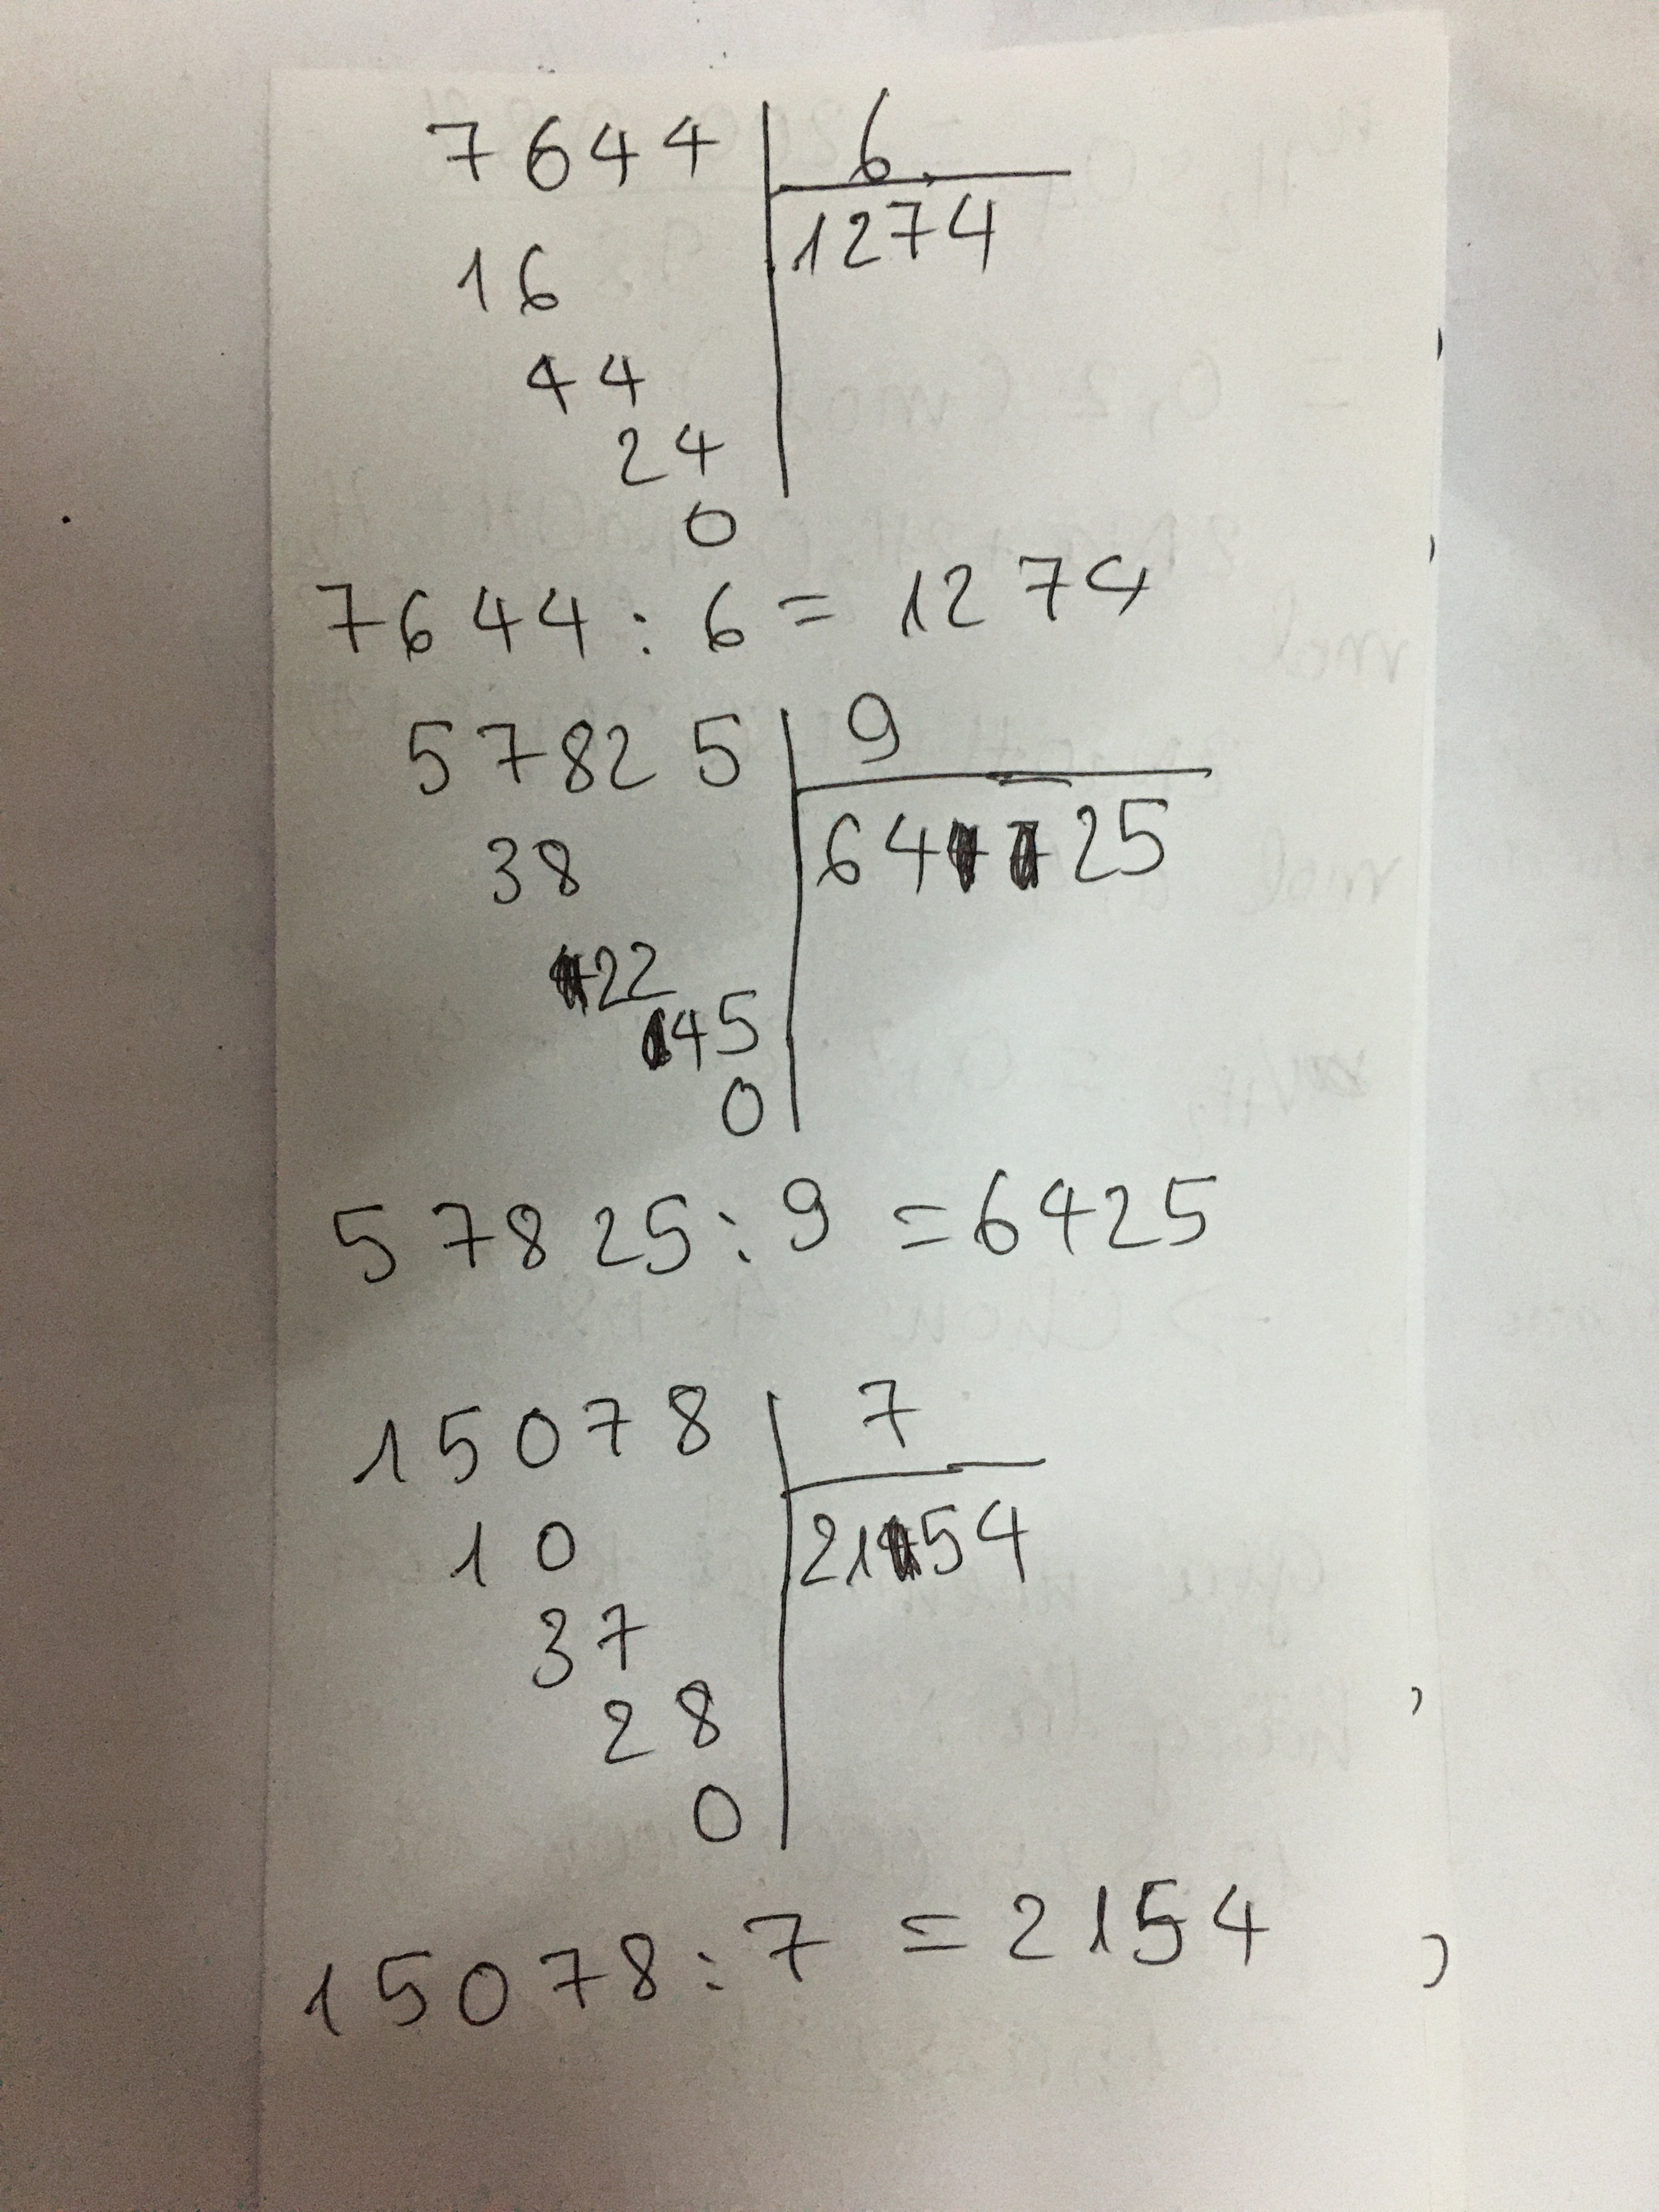 7644 6
1274
16
44
24
0
7644 : 6 = 1274
57825 9
6425
38
22
45
0
57825 : 9 = 6425
15078 7
2154
10
37
28
0
15078 : 7 = 2154